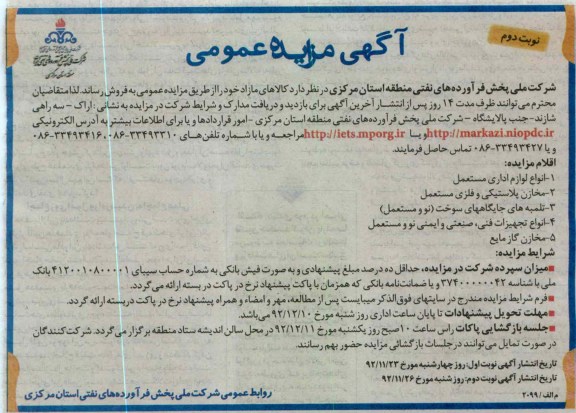 نوبت دوم
آگهی مزایده عمومی
شرکت ملی پخش فرآورده‌های نفتی منطقه استان مرکزی در نظر دارد کالاهای مازاد خود را از طریق مزایده عمومی به فروش رساند. لذا متقاضیان
محترم می‌توانند ظرف مدت ۱۴ روز پس از انتشار آخرین آگهی برای بازدید و دریافت مدارک و شرایط شرکت در مزایده به نشانی: اراک – سه راهی
شازند-جنب پالایشگاه – شرکت ملی پخش فرآورده‌های نفتی منطقه استان مرکزی –امور قراردادها و یا برای اطلاعات بیشتر به آدرس الکترونیکی
http://markazi.niopdc.ir و یا http://iets.mporg.ir مراجعه و یا با شماره تلفن‌های ۳۳۴۹۳۳۱۰-۰۸۶، ۳۳۴۹۳۴۱۶-۰۸۶
و یا ۳۳۴۹۳۴۲۷-۰۸۶ تماس حاصل فرمایند.
اقلام مزایده:
۱-انواع لوازم اداری مستعمل
۲-مخازن پلاستیکی و فلزی مستعمل
۳-تلمبه های جایگاههای سوخت (نو و مستعمل)
۴-انواع تجهیزات فنی، صنعتی و ایمنی نو و مستعمل
۵-مخازن گاز مایع
شرایط مزایده:
■میزان سپرده شرکت در مزایده، حداقل ده درصد مبلغ پیشنهادی و به صورت فیش بانکی به شماره حساب سیبای ۴۱۲۰۰۱۰۸۰۰۰۰۱ بانک
ملی با شناسه ۳۷۴۰۰۰۰۰۰۴۲ و یا ضمانت‌نامه بانکی که همزمان با پاکت پیشنهاد نرخ در پاکت در بسته ارائه می‌گردد.
■فرم شرایط مزایده مندرج در سایتهای فوق‌الذکر میبایست پس از مطالعه، مهر و امضاء و همراه پیشنهاد نرخ در پاکت دربسته ارائه گردد.
■مهلت تحویل پیشنهادات تا پایان ساعت اداری روز شنبه مورخ ۹۲/۱۲/۱۰ می‌باشد.
■جلسه بازگشایی پاکات راس ساعت ۱۰ صبح روز یکشنبه مورخ ۹۲/۱۲/۱۱ در محل سالن اندیشه ستاد منطقه برگزار می‌گردد. شرکت‌کنندگان
در صورت تمایل می‌توانند در جلسات بازگشائی مزایده حضور بهم رسانند.
تاریخ انتشار آگهی نوبت اول: روز چهارشنبه مورخ ۹۲/۱۱/۲۳
تاریخ انتشار آگهی نوبت دوم: روز شنبه مورخ ۹۲/۱۱/۲۶
م الف / ۲۰۹۹
روابط عمومی شرکت ملی پخش فرآورده‌های نفتی استان مرکزی